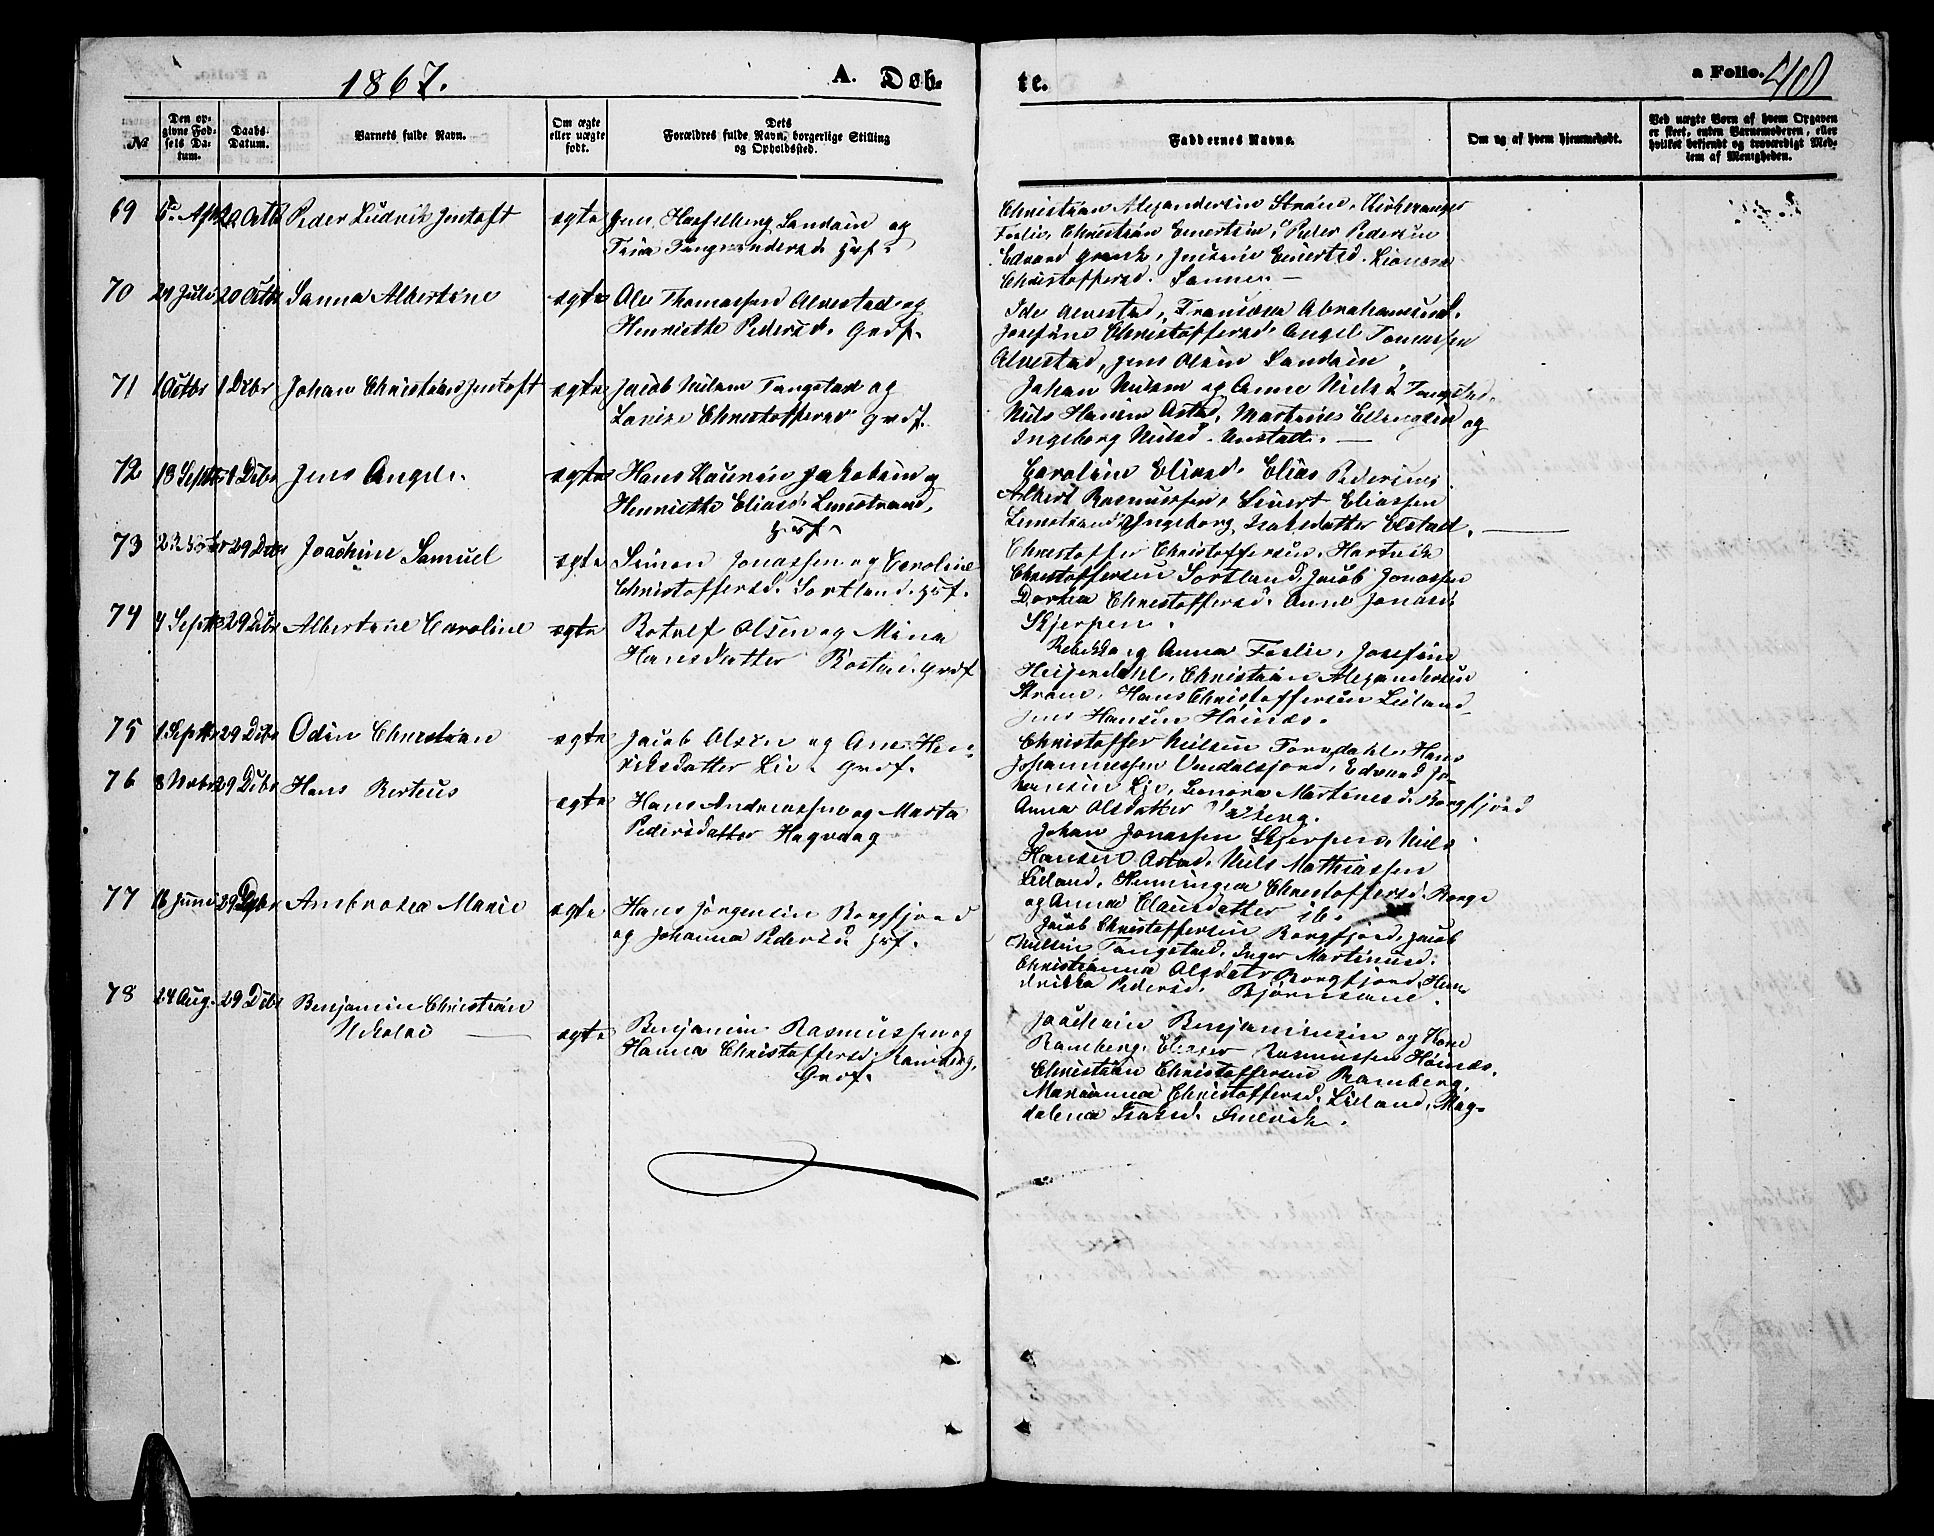 1867.
A. Døb-
te.
a Folio. 40
№
Den opgivne Fødsels Datum.
Daabs-Datum.
Barnets fulde Navn.
Om ægte eller uægte født.
Dets Forældres fulde Navn, borgerlige Stilling og Opholdssted.
Faddernes Navne.
Om og af hvem hjemmedøbt.
Ved uægte Børn af hvem Opgaven er skeet, enten Barnemoderen, eller hvilket bekjendt og troværdigt Medlem af Menigheden.
69
Peder Ludvik Jentoft
ægte
Jens Hasselberg Sandøin og
Christian Alexandersen Strøne,
Christian Enertsen, Peder Pedersen
Edvard Jentsine Enertsd. Lionora
Christoffersd. Sanne.
70 24 Juli 20 Octb Sanna Albertine ægte
Ole Thomassen Alvestad og
Henriette Pedersd. Grdf.
Ide Alvestad, Fransiska Abrahamsend.
Josefine Christoffersd. Angel Tomassen
Alvestad, Jens Olsen Sandøin.
71 1 Octbr 1 Dcbr Johan Christian Jentoft ægte
Jacob Nilsen Tangstad og
Lovise Christoffersd Grdf.
Johan Nilsen og Anne Nielsd Tangstad,
Nils Hansen Østad, Martines Ellingsen og
Ingeborg Nilsd. Unstad.
72 13 Septbr 1 Dcbr Jens Angel. ægte
Hans Laurin Jakobsen og
Henriette Eliasd. Lenestrand,
Hrsf
Caroline Eliasd. Elias Pedersen
Albert Rasmussen, Sivert Eliassen
Lenestrand, Ingeborg Isaksdatter Elstad.
73 29 Dcbr Joachim Samuel ægte
Simon Jonassen og Caroline
Christoffersd. Sortland. Hrsf.
Christoffer Christoffersen, Hartvik
Christoffersen Sortland, Jacob Jonassen
Dorthea Christoffersd. Anne Jonasd.
Skjerpen.
74 4 Septbr 29 Dcbr Albertine Caroline ægte
Botolf Olsen og Mina
Hansdatter Bostad. Grdf
Rebekka og Anna Foslie, Josefine
Heijerdahl, Christian Alexandersen
Strøne, Hans Christoffersen Lieland
Jens Hansen Høines.
75 1 Septbr 29 Dcbr Odin Christian ægte
Jacob Olsen og Ane Hen-
riksdatter Lie. Grdf.
Christoffer Nilsen Torvdahl, Hans
Johannessen Vendalsjord, Edvard Jo-
hansen Lie, Leonora Martinesd. Borgfjord
Anna Olsdatter
76 8 Novbr 29 Dcbr Hans Berteus ægte
Hans Andreassen og Marta
Pedersdatter Hagvaag
Johan Jonassen Skjerpen, Niels
Hansen Østad, Niels Mathiassen
Lieland, Henningea Christoffersd. Borge
og Anna Clausdatter ib.
77 16 Juni 29 Dcbr Ambrosea Marie ægte
Hans Jørgensen Borgfjord
og Johanna Pedersd Hrsf.
Jacob Christoffersen Borgfjord, Jacob
Nilsen Tangstad, Inger Martinusd.
Christianna Olsdatr Borgfjord, Hen-
drikka Pedersd. Bjørnsand.
78 24 Aug. 29 Dcbr Benjamin Christian
Nikolai ægte
Benjamin Rasmussen og
Hanna Christoffersd. Ramberg,
Grdf.
Joachim Benjaminsen og Kone
Ramberg, Elieser Rasmussen Høines,
Christian Christoffersen Ramberg,
Marianna Christoffersd. Lieland, Mag-
dalena Isaksd.